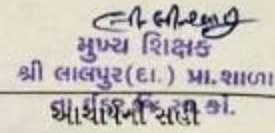 મુખ્ય શિક્ષક
શ્રી લાલપુર(દા.) પ્રા.શાળા
આચાર્યની સહી